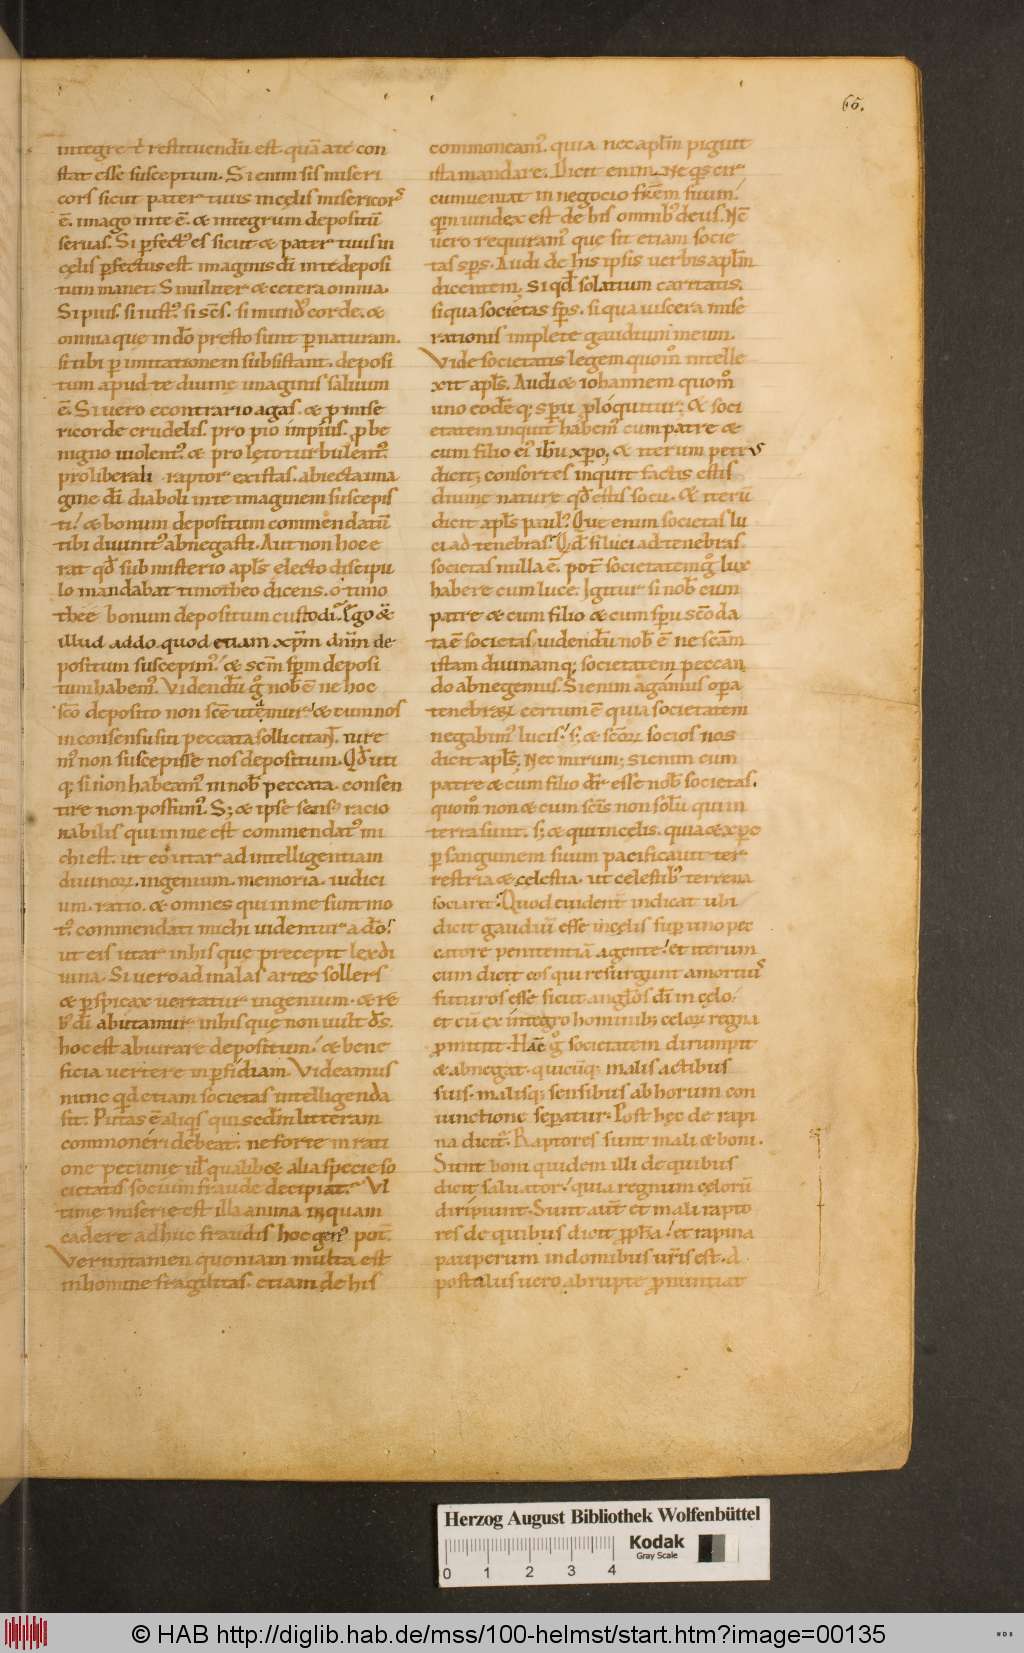 65.
integre t̄ restituendū est quā a te con
stat esse susceptum. Si enim sis miseri
cors sicut pater tuus in cęlis misericorꝰ
ē. imago in te ē. & integrum depositū
seruas. Si ꝑfectꝰ es sicut & pater tuus in
cęlis ꝑfectus est imaginis dī in te deposi
tum manet. Similiter & cetera omnia.
Si pius. si iustꝰ. si sc̄s. si mundꝰ corde. &
omnia que in dō presto sunt ꝑ naturam.
si tibi ꝑ imitationem subsistant. deposi
tum apud te diuinę imaginis saluum
ē. Si uero econtrario agas. & ꝓ mise
ricorde crudelis. pro pio impius. ꝓ be
nigno uiolentꝰ. & pro lęto turbulentꝰ.
pro liberali raptor existas. abiecta ima
gine dī diaboli in te imaginem suscepis
ti. & bonum depositum commendatū
tibi diuinitꝰ abnegasti. Aut non hoc e
rat qd̄ sub misterio apl̄s electo discipu
lo mandabat timotheo dicens. o timo
thee bonum depositum custodi. Ego &
illud addo quod etiam xp̄m dn̄m de
positum suscepimꝰ. & sc̄m sp̄m deposi
tum habemꝰ. Videndū gͦ nob̄ ē ne hoc
sc̄o deposito non sc̄e utemur. & cum nos
in consensu siti peccata sollicitant. iure
mꝰ non suscepisse nos depositum. Qd̄ uti
q; si non habeamꝰ in nob̄ peccata consen
tire non possumꝰ. S; & ipse sensꝰ racio
nabilis qui in me est commendatꝰ mi
chi est. ut eo utar ad intelligentiam
diuinoꝝ. ingenium. memoria. iudici
um. ratio. & omnes qui in me sunt mo
tꝰ commendati michi uidentur a dō.
ut eis utar in his que precepit lex di
uina. Si uero ad malas artes sollers
& ꝑspicax uertatur ingenium. & re
bꝰ dī abutamur in his que non uult ds̄.
hoc est abiurare depositum. & bene
ficia uertere in ꝑfidiam. Videamus
nunc quid etiam societas intelligenda
sit. Putas ē aliqs qui sedm litteram
commoneri debeat. ne forte in rati
one pecunie ul̄ qualib& alia specie so
cietatis socium fraude decipiat. Vl
time miserie est illa anima inquam
cadere adhuc fraudis hoc genꝰ pot̄.
Veruntamen quoniam multa est
in homine fragilitas. etiam de his
commoneamꝰ. quia nec apl̄m piguit
ista mandare. Dicit enim. Ne qs cir
cumueniat in negocio fr̄em suum.
qm̄ uindex est de his omnibꝰ deus. Nc̄
uero requiramꝰ que sit etiam socie
tas sp̄s. Audi de his ipsis uerbis apl̄m
dicentem. Si qd̄ solatium caritatis.
si qua societas sp̄s. si qua uiscera mise
rationis implete gaudium meum.
Vide societatis legem quom̊ intelle
xit apl̄s. Audi & iohannem quom̊
uno eodēq; sp̄u ꝓloquitur. & soci
etatem inquit habemꝰ cum patre &
cum filio eiꝰ ih̄u xp̄o. & iterum petrꝰ
dicit. consortes inquit facti estis
diuinę nature qd̄ estis socii. & iterū
dicit apl̄s paulꝰ. Que enim societas lu
ci ad tenebras. Qd̄ si luci ad tenebras
societas nulla ē. pot̄ societatem gͦ lux
habere cum luce. Igitur si nob̄ cum
patre & cum filio & cum sp̄u sc̄o da
ta ē societas. uidendū nob̄ ē ne sc̄am
istam diuinamq; societatem peccan
do abnegemus. Si enim agamus opera
tenebraꝝ certum ē quia societatem
negabimꝰ lucis. s; & sc̄oꝝ socios nos
dicit apl̄s. Nec mirum. si enim cum
patre & cum filio dr̄ esse nob̄ societas.
quom̊ non & cum sc̄is non solū qui in
terra sunt. s; & qui in cęlis. quia & xp̄c
ꝑ sanguinem suum pacificauit ter
restria & cęlestia. ut celestibꝰ terrena
sociaret. Quod euident̄ indicat ubi
dicit gaudiū esse in cęlis suꝑ uno pec
catore penitentiā agente. et iterum
cum dicit eos qui resurgunt a mortuis
futuros esse sicut angl̄os dī in cęlo.
et cū ex integro hominib; celoꝝ regna
ꝓmittit. Hāc gͦ societatem dirumpit
& abnegat. quicūq; malis actibus
suis. malisq; sensibus ab horum con
iunctione separatur. Post hęc de rapi
na dicit. Raptores sunt mali & boni.
Sunt boni quidem illi de quibus
dicit saluator. quia regnum cęlorū
diripiunt. Sunt aut̄ et mali rapto
res de quibus dicit ꝓph̄a. et rapina
pauperum in domibus ur̄is est. A
postulus uero abrupte ꝓnuntiat
Herzog August Bibliothek Wolfenbüttel
0 1 2 3 4
Kodak
Gray Scale
© HAB http://diglib.hab.de/mss/100-helmst/start.htm?image=00135